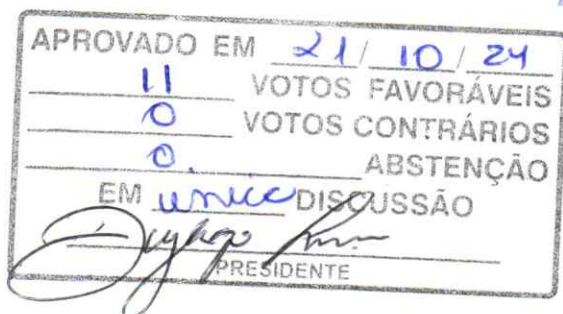 APROVADO EM 21/10/24
11 VOTOS FAVORÁVEIS
0 VOTOS CONTRÁRIOS
0. ABSTENÇÃO
EM unica DISCUSSÃO
PRESIDENTE